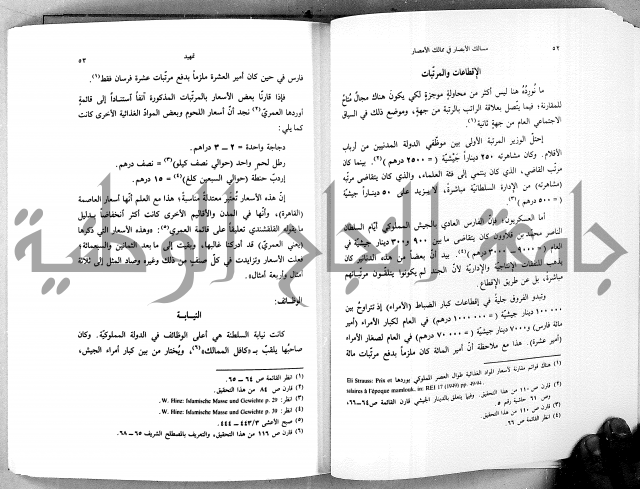 ٥٢
مسالك الأبصار في ممالك الأمصار
الإقطاعات والمرتّبات
ما نُورِدُهُ هنا ليس أكثر من محاولةٍ موجزةٍ لكي يكون هناك مجالٌ مُتاحٌ
للمقارنة؛ فيما يتّصل بعلاقة الراتب بالرتبة من جهةٍ، وموضع ذلك في السياق
الاجتماعي العام من جهةٍ ثانية(١).
إحتلّ الوزير المرتبة الأولى بين موظّفي الدولة المدنيين من أرباب
الأقلام. وكان مشاهرته ٢٥٠ ديناراً جَيْشيّة (= ٢٥٠٠ درهم)(٢). بينما كان
مرتّب القاضي، الذي كان ينتمي إلى فئة العلماء، والذي كان يتقاضى مرتّبه
(مشاهرته) من الإدارة السلطانيّة مباشرةً، لا يزيد على ٥٠ ديناراً جيشيّة
(= ٥٠٠ درهم)(٣).
أما العسكريون، فإنّ الفارس العادي بالجيش المملوكي أيّام السلطان
الناصر محمّد بن قلاوون كان يتقاضى ما بين ٩٠٠ و٣٠٠ دينار جيشيّة في
العام (= ٩٠٠٠ و٣٠٠٠ درهم)(٤). بيد أنّ بعضاً من هذه الدنانير كان
يذهب للنفقات الإنتاجيّة والإداريّة لأنّ الجند لم يكونوا يتلقّون مرتّباتهم
مباشرةً، بل عن طريق الإقطاع.
وتبدو الفروق جليةً في إقطاعات كبار الضباط (الأمراء) إذ تتراوح بين
١٠٠٠٠٠ دينار جيشيّة (= ١٠٠٠٠٠٠ درهم) في العام لكبار الأمراء (أمير
مائة فارس) و٧٠٠٠ دينار جيشيّة (= ٧٠٠٠٠ درهم) في العام لصغار الأمراء
(أمير عشرة). هذا مع ملاحظة أنّ أمير المائة كان ملزماً بدفع مرتّبات مائة
(١) هناك قوائم مقارنة لأسعار المواد الغذائية طوال العصر المملوكي يوردها Eli Strauss: Prix et
salaires à l'époque mamlouk. in: REI 17 (1949) pp. 49-94.
(٢) قارن ص ١١٠ من هذا التحقيق. وفيما يتعلق بالدينار الجيشي قارن القائمة ص ٦٤-٦٦،
وص ٦١ حاشية رقم ٥.
(٣) قارن ص ١١٠ من هذا التحقيق.
(٤) قارن القائمة ص ٦٦.
تمهيد
٥٣
فارس في حين كان أمير العشرة ملزماً بدفع مرتّبات عشرة فرسان فقط(١).
فإذا قارنّا بعض الأسعار بالمرتبات المذكورة آنفاً استناداً إلى قائمةٍ
أوردها العمريّ(٢) نجد أنّ أسعار اللحوم وبعض الموادّ الغذائية الأخرى كانت
كما يلي:
دجاجة واحدة = ٢ ــ ٣ دراهم.
رطل لحم واحد (حوالي نصف كيلو)(٣) = نصف درهم.
إردبّ حنطة (حوالي السبعين كلغ)(٤) = ١٥ درهم.
إنّ هذه الأسعار تُعتبر معتدلةً مناسبةً؛ هذا مع العلم أنّها أسعار العاصمة
(القاهرة)، وأنّها في المدن والأقاليم الأخرى كانت أكثر انخفاضاً بدليل
ما يقوله القلقشندي تعليقاً على قائمة العمري(٥): «وهذه الأسعار التي ذكرها
(يعني العمريّ) قد أدركنا غالبها، وبقيت إلى ما بعد الثمانين والسبعمائة؛
فعلت الأسعار وتزايدت في كلّ صنفٍ من ذلك وغيره وصار المثل إلى ثلاثة
أمثال وأربعة أمثال».
الوظائف:
النيابة
كانت نيابة السلطنة هي أعلى الوظائف في الدولة المملوكيّة. وكان
صاحبُها يلقّب بـ«كافل الممالك»(٦)، ويُختار من بين كبار أمراء الجيش،
(١) انظر القائمة ص ٦٤ ــ ٦٥.
(٢) قارن ص A٤ من هذا التحقيق.
(٣) انظر: W. Hinz: Islamische Masse und Gewichte p. 29.
(٤) انظر: W. Hinz: Islamische Masse und Gewichte p. 39.
(٥) صبح الأعشى ٤٤٣/٣ ــ ٤٤٤.
(٦) قارن ص ١١٦ من هذا التحقيق، والتعريف بالمصطلح الشريف ٦٥ ــ ٦٨.